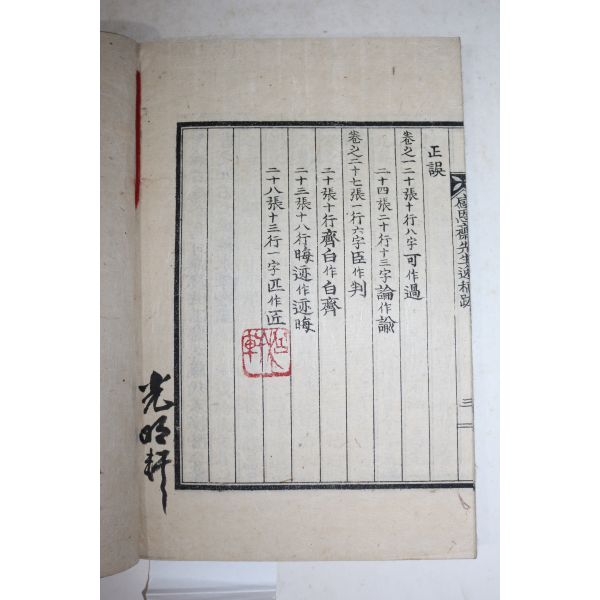 感恩齋先生逸稿跋
三
正誤
卷之一二十張十行八字可作過
二十四張二十行十三字論作諭
卷之二十七張一行六字臣作判
二十張十行齊白作白齊
二十三張十八行晦迹作迹晦
二十八張十三行一字匹作匠
光明軒